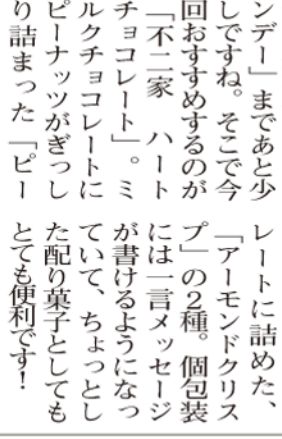 ンデー」まであと少
しですね。そこで今
回おすすめするのが
「不二家　ハート
チョコレート」。ミ
ルクチョコレートに
ピーナッツがぎっし
り詰まった「ピー
レートに詰めた、
「アーモンドクリス
プ」の2種。個包装
には一言メッセージ
が書けるようになっ
ていて、ちょっとし
た配り菓子としても
とても便利です！